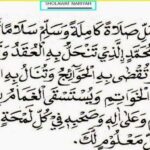 SHOLAWAT NARIYAH
صَلَاةً كَامِلَةً وَسَلِّمْ سَلَامًا
مُحَمَّدِ الَّذِي تَنْحَلُّ بِهِ الْعُقَدُ وَ
تُقْضَى بِهِ الْحَوَائِجُ وَتُنَالُ بِهِ
الْخَوَاتِمِ وَيُسْتَسْقَى الْغَمَامُ
وَعَلَى آلِهِ وَصَحْبِهِ فِي كُلِّ لَمْحَةٍ
مَعْلُومٍ لَكَ